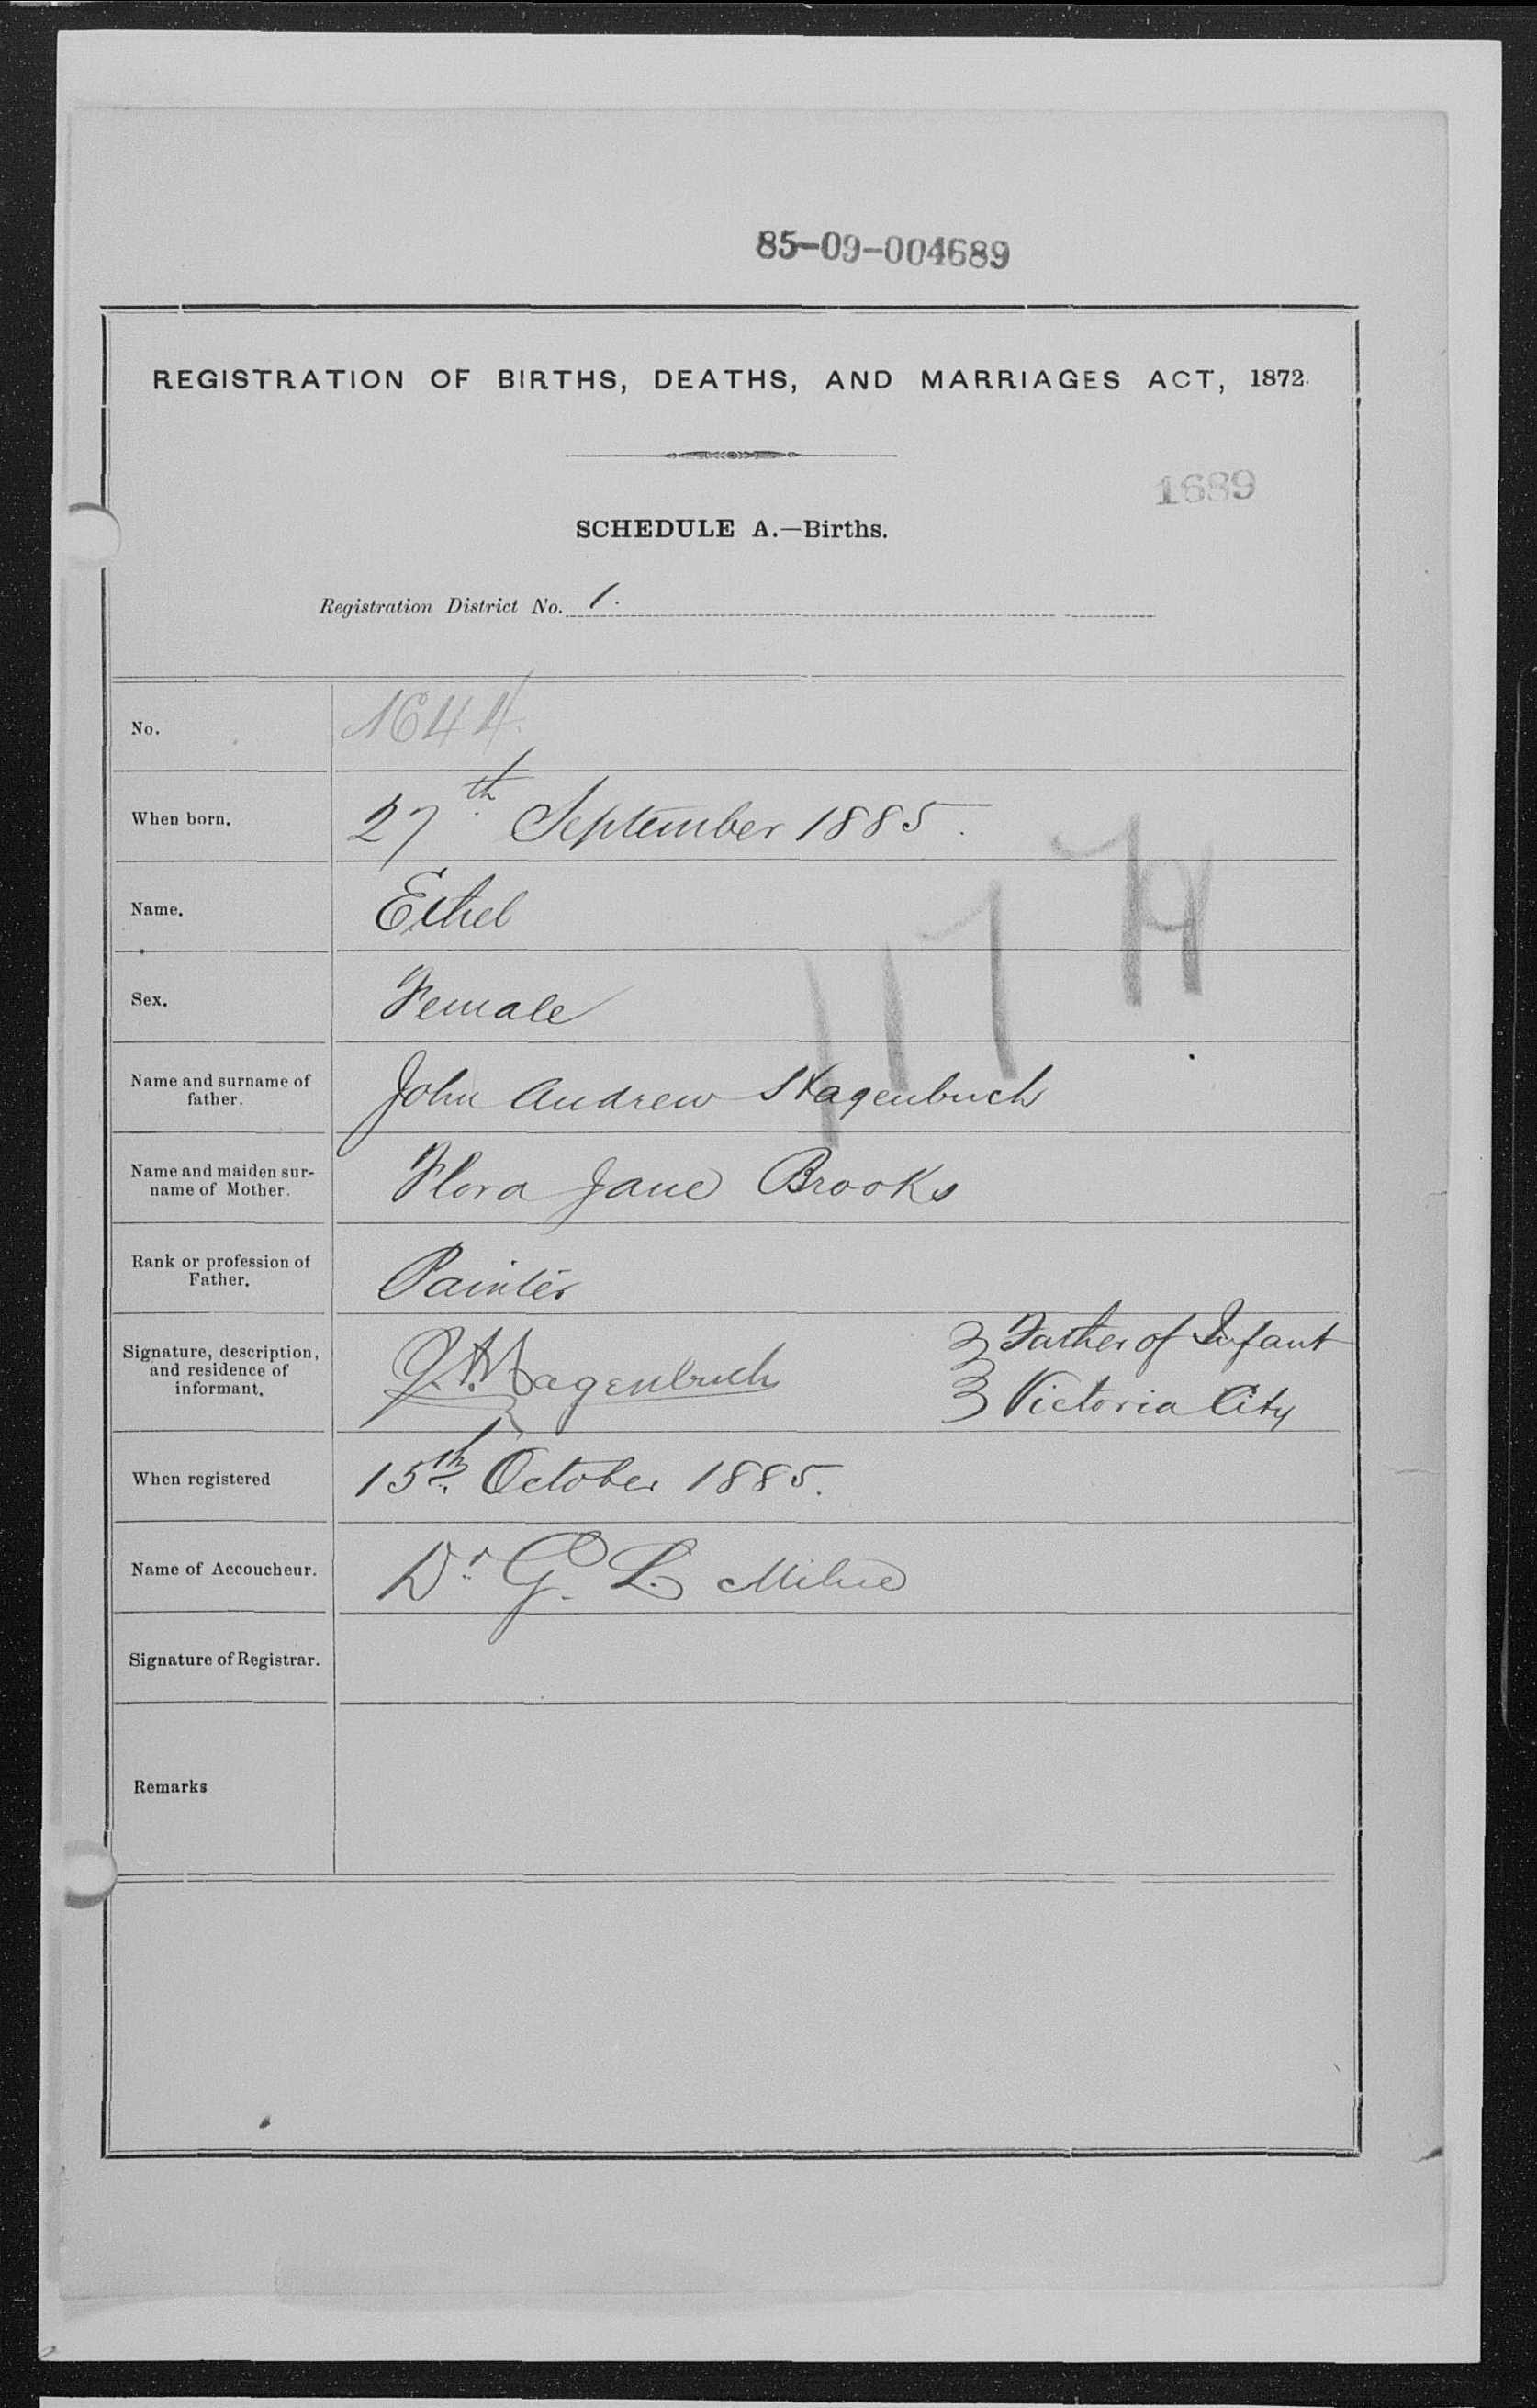 85-09-004689
REGISTRATION OF BIRTHS, DEATHS, AND MARRIAGES ACT, 1872.
1689
SCHEDULE A.—Births.
Registration District No. 1.
No. 1644
When born. 27th September 1885.
Name. Ethel
Sex. Female
Name and surname of
father. John Andrew Hagenbuch
Name and maiden sur-
name of Mother. Flora Jane Brooks
Rank or profession of
Father. Painter
Signature, description,
and residence of
informant. J. A. Hagenbuch
Father of Infant
Victoria City
When registered 15th October 1885.
Name of Accoucheur. Dr. G. L. Milne
Signature of Registrar.
Remarks